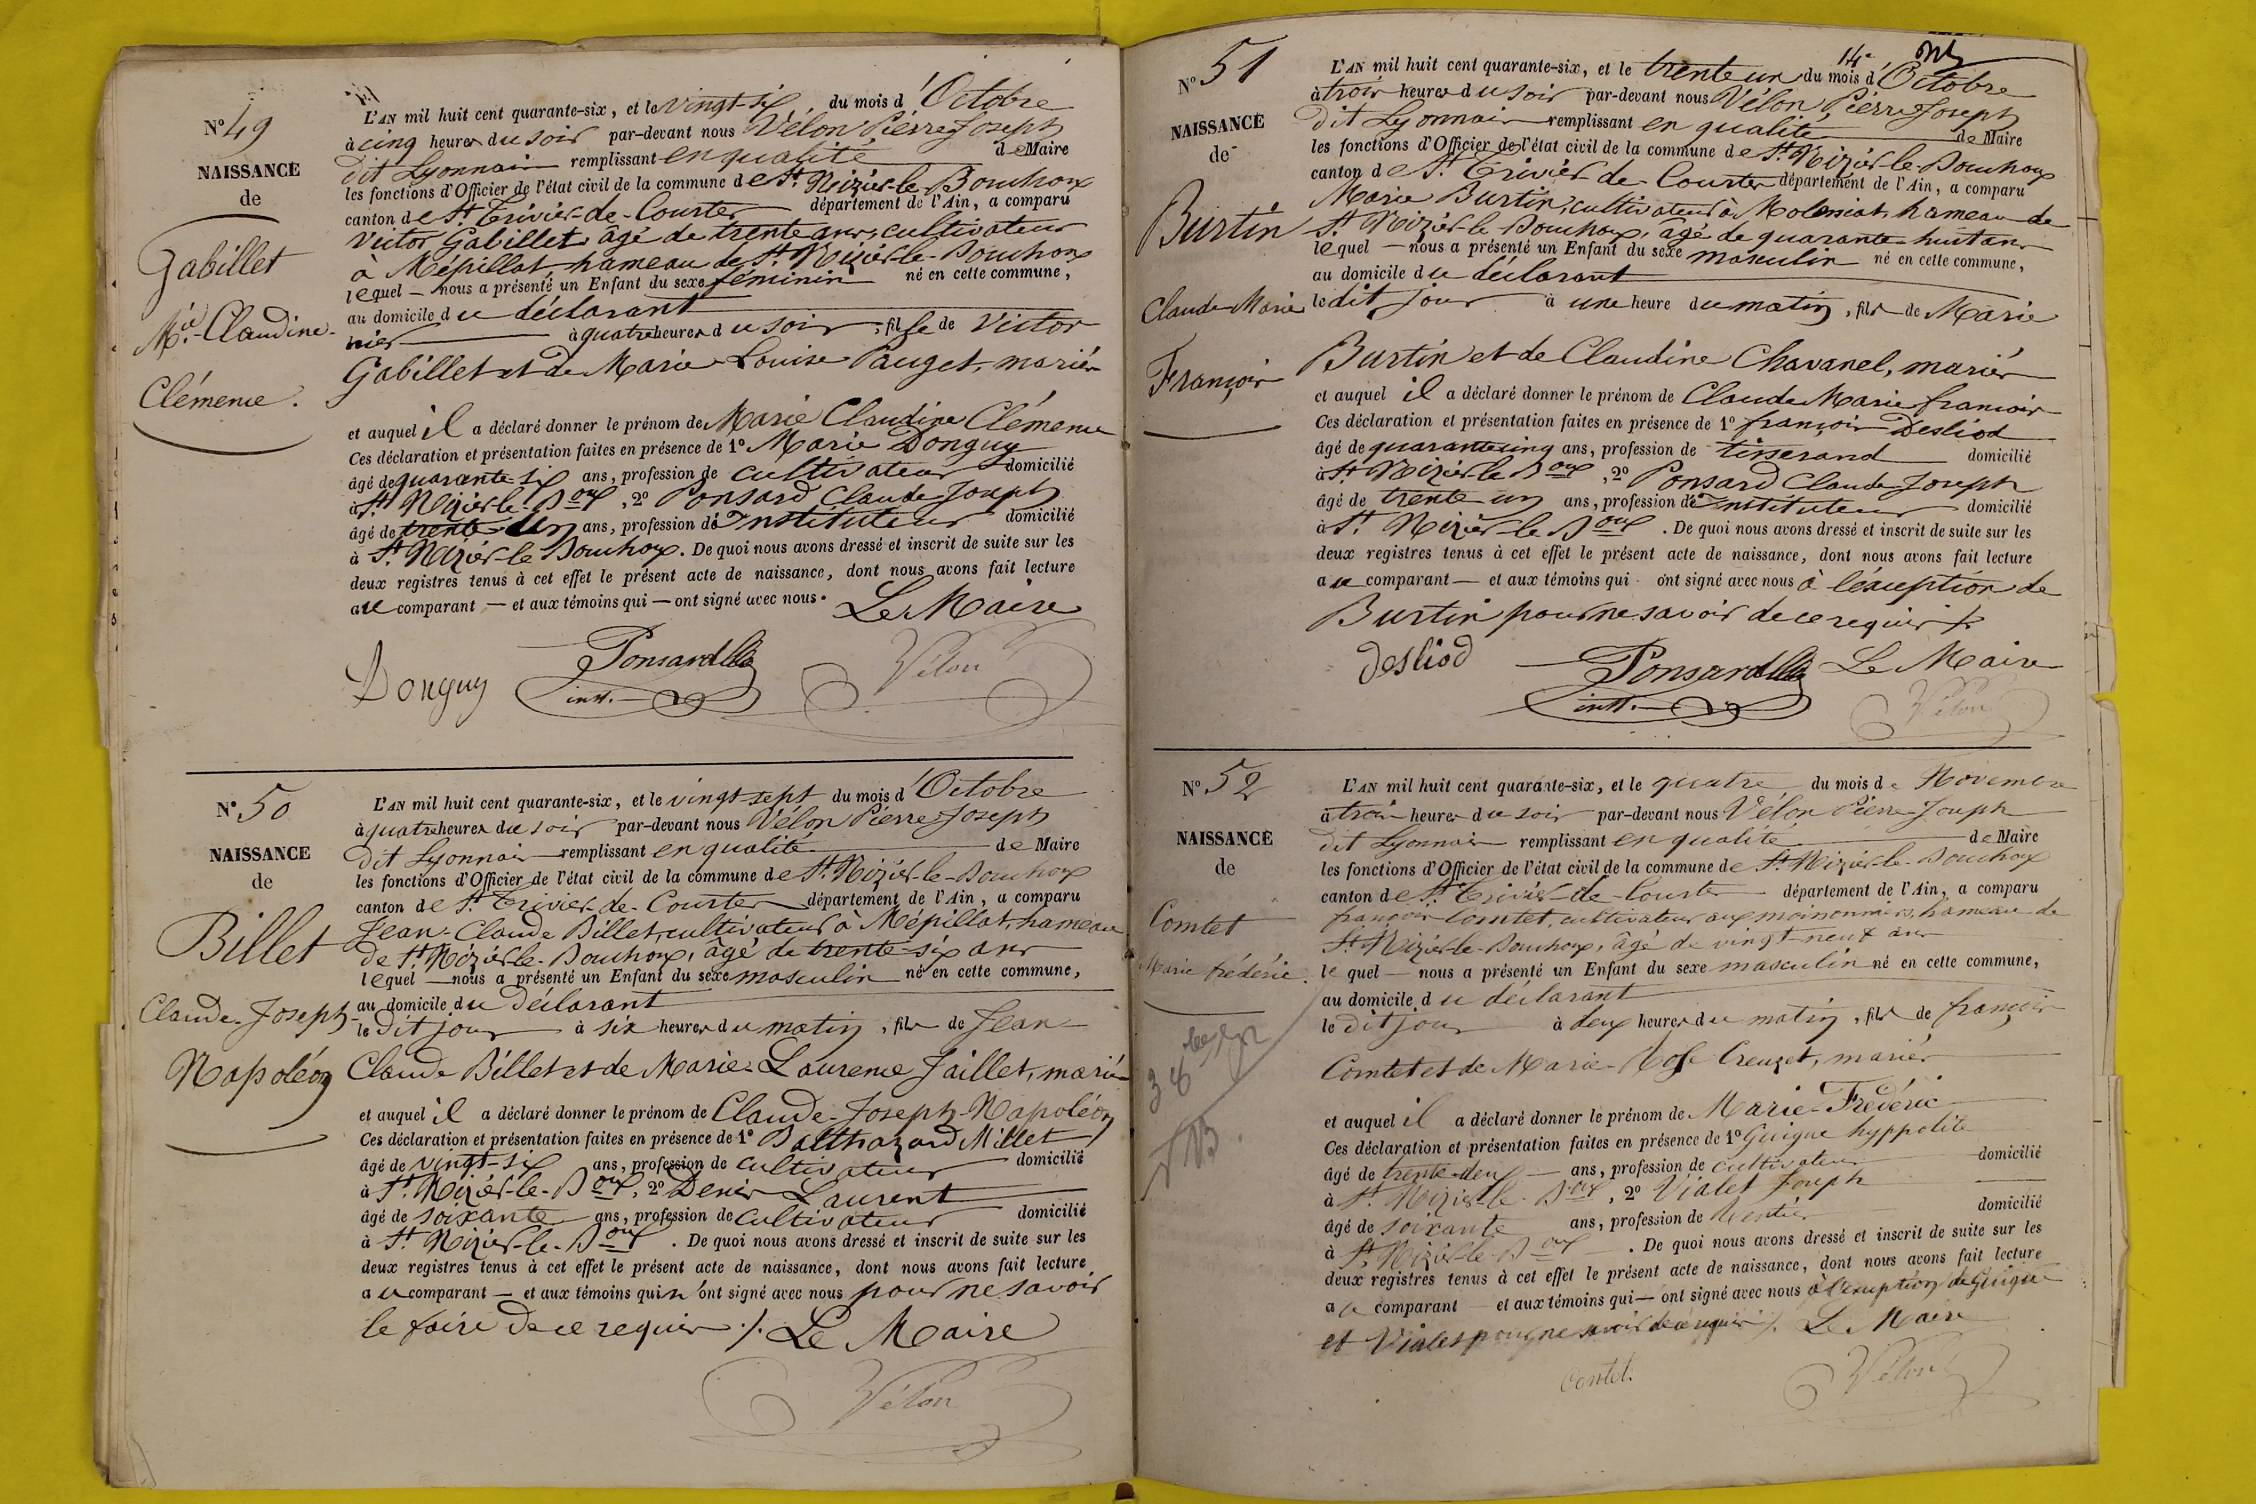 N° 49
NAISSANCE
de
Gabillet
Mie. Claudine
Clémence.
L'AN mil huit cent quarante-six, et le vingt-six du mois d'Octobre
à cinq heures du soir par-devant nous Vélon Pierre Joseph
dit Lyonnais remplissant en qualité de Maire
les fonctions d'Officier de l'état civil de la commune de St. Nizier-le-Bouchoux
canton de St. Trivier-de-Courtes département de l'Ain, a comparu
Victor Gabillet, âgé de trente ans, cultivateur
à Mépillat, hameau de St. Nizier-le-Bouchoux
lequel — nous a présenté un Enfant du sexe féminin né en cette commune,
au domicile du déclarant
hier à quatre heures du soir, fille de Victor
Gabillet et de Marie Louise Pauget, mariés
et auquel il a déclaré donner le prénom de Marie Claudine Clémence
Ces déclaration et présentation faites en présence de 1° Marie Donguy
âgé de quarante-six ans, profession de cultivateur domicilié
à St. Nizier-le-Boux, 2° Ponsard Claude Joseph
âgé de trente un ans, profession d'Instituteur domicilié
à St. Nizier-le Bouchoux. De quoi nous avons dressé et inscrit de suite sur les
deux registres tenus à cet effet le présent acte de naissance, dont nous avons fait lecture
au comparant — et aux témoins qui — ont signé avec nous. Le Maire
Donguy Ponsard inst. Vélon
N° 50
NAISSANCE
de
Billet
Claude-Joseph-
Napoléon
L'AN mil huit cent quarante-six, et le vingt-sept du mois d'Octobre
à quatre heures du soir par-devant nous Vélon Pierre Joseph
dit Lyonnais remplissant en qualité de Maire
les fonctions d'Officier de l'état civil de la commune de St. Nizier-le-Bouchoux
canton de St. Trivier-de-Courtes département de l'Ain, a comparu
Jean-Claude Billet, cultivateur à Mépillat, hameau
de St. Nizier-le-Bouchoux, âgé de trente-six ans
lequel — nous a présenté un Enfant du sexe masculin né en cette commune,
au domicile du Déclarant
le dit jour à six heures du matin, fils de Jean
Claude Billet et de Marie-Laurence Jaillet, mariés
et auquel il a déclaré donner le prénom de Claude-Joseph-Napoléon
Ces déclaration et présentation faites en présence de 1° Balthazard Millet
âgé de vingt-six ans, profession de cultivateur domicilié
à St. Nizier-le-Boux, 2° Denis Laurent
âgé de soixante ans, profession de cultivateur domicilié
à St. Nizier-le-Boux. De quoi nous avons dressé et inscrit de suite sur les
deux registres tenus à cet effet le présent acte de naissance, dont nous avons fait lecture
au comparant — et aux témoins qui n'ont signé avec nous pour ne savoir
le faire de ce requis ./. Le Maire
Vélon
14e
N° 51
NAISSANCE
de
Burtin
Claude Marie
François
L'AN mil huit cent quarante-six, et le trente un du mois d'Octobre
à trois heures du soir par-devant nous Vélon Pierre Joseph
dit Lyonnais remplissant en qualité de Maire
les fonctions d'Officier de l'état civil de la commune de St. Nizier-le-Bouchoux
canton de St. Trivier-de-Courtes département de l'Ain, a comparu
Marie Burtin, cultivateur à Molemiat hameau de
St. Nizier-le Bouchoux, âgé de quarante-huit ans
lequel — nous a présenté un Enfant du sexe masculin né en cette commune,
au domicile du déclarant
le dit jour à une heure du matin, fils de Marie
Burtin et de Claudine Chavanel, mariés
et auquel il a déclaré donner le prénom de Claude Marie françois
Ces déclaration et présentation faites en présence de 1° françois Desliod
âgé de quarante cinq ans, profession de tisserand domicilié
à St. Nizier-le Boux, 2° Ponsard Claude Joseph
âgé de trente un ans, profession d'Instituteur domicilié
à St. Nizier-le Boux. De quoi nous avons dressé et inscrit de suite sur les
deux registres tenus à cet effet le présent acte de naissance, dont nous avons fait lecture
au comparant — et aux témoins qui ont signé avec nous à l'éxception de
Burtin pour ne savoir de ce requis ./.
desliod Ponsard inst. Le Maire
Vélon
N° 52
NAISSANCE
de
Comtet
Marie Frédéric.
L'AN mil huit cent quarante-six, et le quatre du mois de Novembre
à trois heures du soir par-devant nous Vélon Pierre Joseph
dit Lyonnais remplissant en qualité de Maire
les fonctions d'Officier de l'état civil de la commune de St. Nizier-le-Bouchoux
canton de St. Trivier-de-Courtes département de l'Ain, a comparu
françois Comtet, cultivateur aux moinonniers, hameau de
St. Nizier-le-Bouchoux, âgé de vingt-neuf ans
lequel — nous a présenté un Enfant du sexe masculin né en cette commune,
au domicile du déclarant
le dit jour à deux heures du matin, fils de françois
Comtet et de Marie-Rose Creuzet, mariés
et auquel il a déclaré donner le prénom de Marie-Frédéric
Ces déclaration et présentation faites en présence de 1° Guigue hyppolite
âgé de trente-deux ans, profession de cultivateur domicilié
à St. Nizier-le-Boux, 2° Vialet Joseph
âgé de soixante ans, profession de Rentier domicilié
à St. Nizier-le-Boux. De quoi nous avons dressé et inscrit de suite sur les
deux registres tenus à cet effet le présent acte de naissance, dont nous avons fait lecture
au comparant et aux témoins qui — ont signé avec nous à l'exception de Guigue
et Vialet pour ne savoir de ce requis ./. Le Maire
Comtet. Vélon